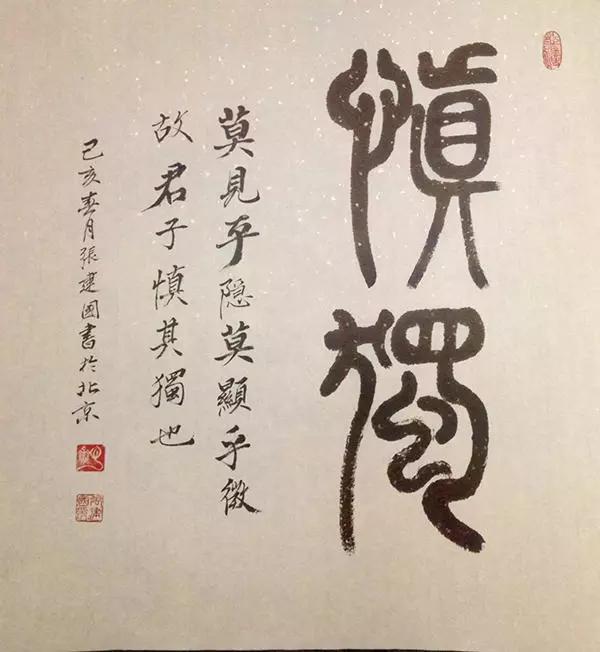 慎獨
莫見乎隐莫顯乎微
故君子慎其獨也
己亥春月張建國書於北京